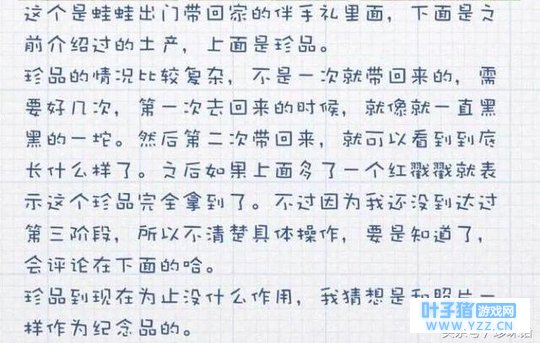 这个是蛙蛙出门带回家的伴手礼里面，下面是之
前介绍过的土产，上面是珍品。
珍品的情况比较复杂，不是一次就带回来的，需
要好几次，第一次去回来的时候，就像就一直黑
黑的一坨。然后第二次带回来，就可以看到到底
长什么样了。之后如果上面多了一个红戳戳就表
示这个珍品完全拿到了。不过因为我还没到达过
第三阶段，所以不清楚具体操作，要是知道了，
会评论在下面的哈。
珍品到现在为止没什么作用，我猜想是和照片一
样作为纪念品的。
叶子猪游戏网
www.YZZ.CN